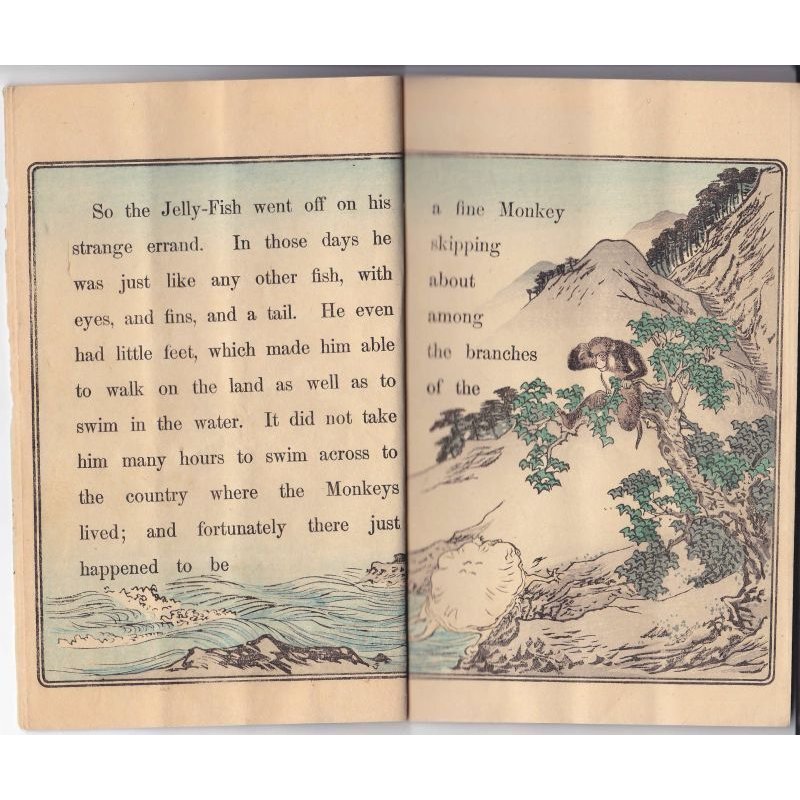 So the Jelly-Fish went off on his
strange errand. In those days he
was just like any other fish, with
eyes, and fins, and a tail. He even
had little feet, which made him able
to walk on the land as well as to
swim in the water. It did not take
him many hours to swim across to
the country where the Monkeys
lived; and fortunately there just
happened to be
a fine Monkey
skipping
about
among
the branches
of the